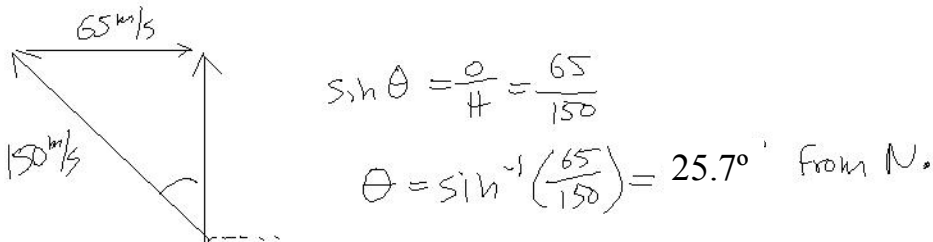 65 m/s
150 m/s
sin θ = O/H = 65/150
θ = sin⁻¹(65/150) = 25.7º from N.